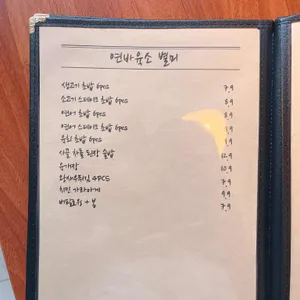 연바육소 별미
생고기 초밥 6pcs 7.9
소고기 스테이크 초밥 6pcs 8.9
연어 초밥 6pcs 8.9
연어 스테이크 초밥 6pcs 9.9
유회 초밥 6pcs 7.9
사골 차돌 된장 술밥 12.9
육개장 10.9
왕새우튀김 4PCS 7.9
치킨 가라아게 9.9
버팔로윙 + 봉 7.9